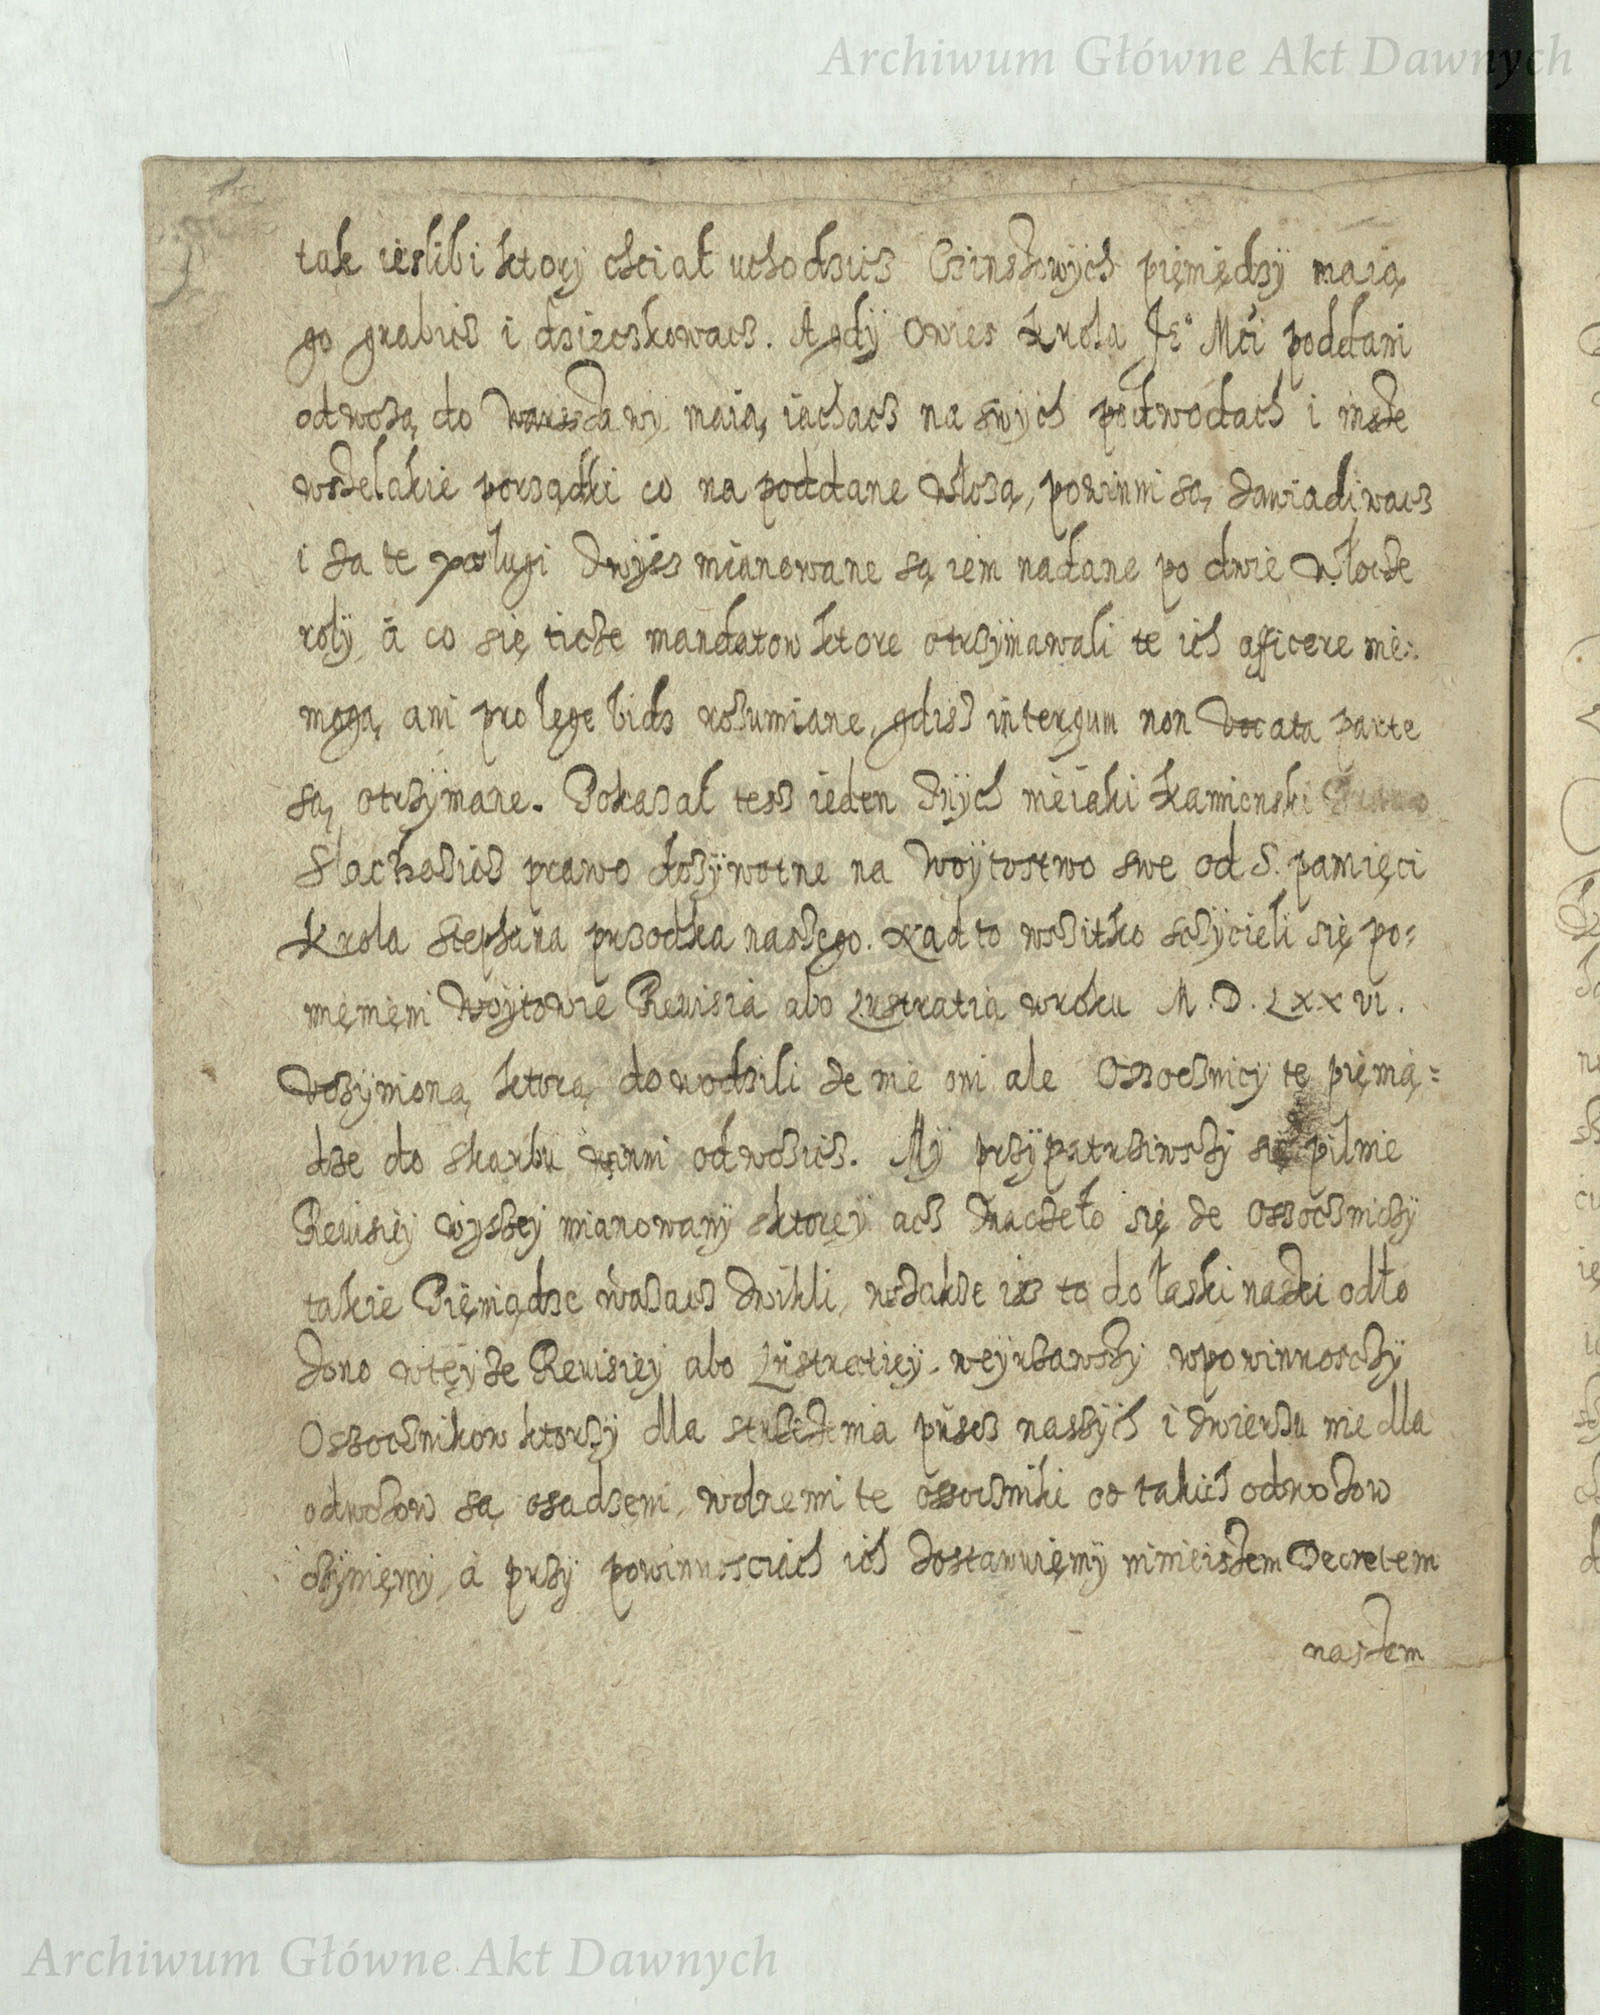 Archiwum Główne Akt Dawnych
tak ieslibi ktory chciał uchodzicz Czinszowÿch pięmiędzÿ maią
go grabicz i dzięczkowacz. A gdÿ Owies Krola Je° Mči poddani
odwozą do Warszawy maią iachacz na swÿch podwodach i insze
wszelakie porządki co na poddane włozą, powinni są zawiadiwacz
i za te poslugi zwÿsz mianowane są iem nadane po dwie włocze
roly, á co się ticze mandatow ktore otrzÿmawali te ich afficere nie:
mogą ani pro lege bidz rozumiane, gdisz in tergum non vocata parte
są otrzÿmane. Pokazał tesz ieden znÿch nieiaki Kamienski
Slachcicz prawo dozÿwotne na Woÿtostwo swe od S. pamięci
Krola Stephana przodka naszego. Nad to wszitko sczÿcieli się po=
mięmięni Woÿtowie Reuisią abo Lustratią w roku M.D.LXXVI.
vczÿnioną, ktorą dowodzili ze nie oni ale Oszocznicy te pięmią=
dze do skarbu winni odwozicz. Mÿ przÿpatrziwszÿ się pilnie
Reuisiÿ wÿszeÿ mianowanÿ zktoreÿ acz znaczeło się ze Oszoczniczÿ
takie Pięniądze wazacz zwikli, wszakze isz to do łaski naszei odło
zono w tęÿze Reuisieÿ abo Lustratieÿ. weÿrzawszÿ w powinnosczÿ
Oszocznikow ktorzÿ dla strzezenia puszcz naszÿch i zwierzu nie dla
odwozow są osadzeni, wolnemi te oszoczniki od takich odwozow
czÿnięmÿ, á przÿ powinnosciach ich zostawuięmÿ ninieiszem Decretem
naszem
Archiwum Główne Akt Dawnych